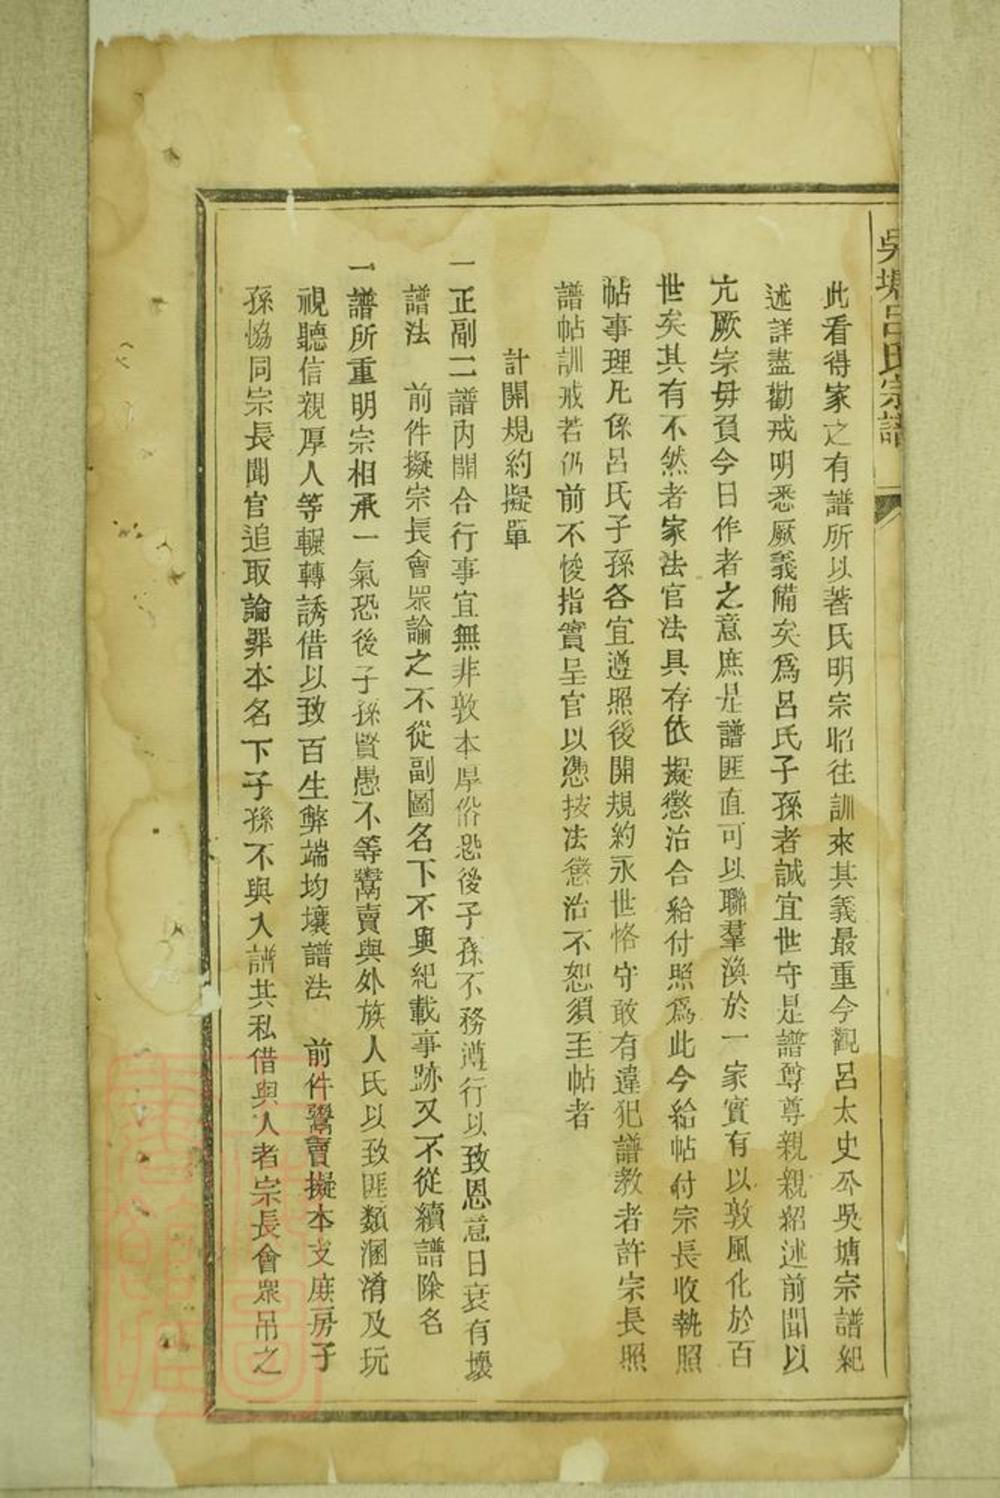 吳塘呂氏宗譜
此看得家之有譜所以著氏明宗昭往訓來其義最重今觀呂太史公吳塘宗譜紀
述詳盡勸戒明悉厥義備矣為呂氏子孫者誠宜世守是譜尊尊親親紹述前聞以
亢厥宗毋負今日作者之意庶是譜匪直可以聯羣渙於一家實有以敦風化於百
世矣其有不然者家法官法具存依擬懲治合給付照為此今給帖付宗長收執照
帖事理凡係呂氏子孫各宜遵照後開規約永世恪守敢有違犯譜教者許宗長照
譜帖訓戒若仍前不悛指實呈官以憑按法懲治不恕須至帖者
計開規約擬單
一正副二譜內開合行事宜無非敦本厚俗恐後子孫不務遵行以致恩意日衰有壞
譜法　前件擬宗長會眾諭之不從副圖名下不與紀載事跡又不從續譜除名
一譜所重明宗相承一氣恐後子孫賢愚不等鬻賣與外族人氏以致匪類溷淆及玩
視聽信親厚人等輾轉誘借以致百生弊端均壞譜法　前件鬻賣擬本支庶房子
孫恊同宗長聞官追取論罪本名下子孫不與入譜其私借與人者宗長會眾吊之